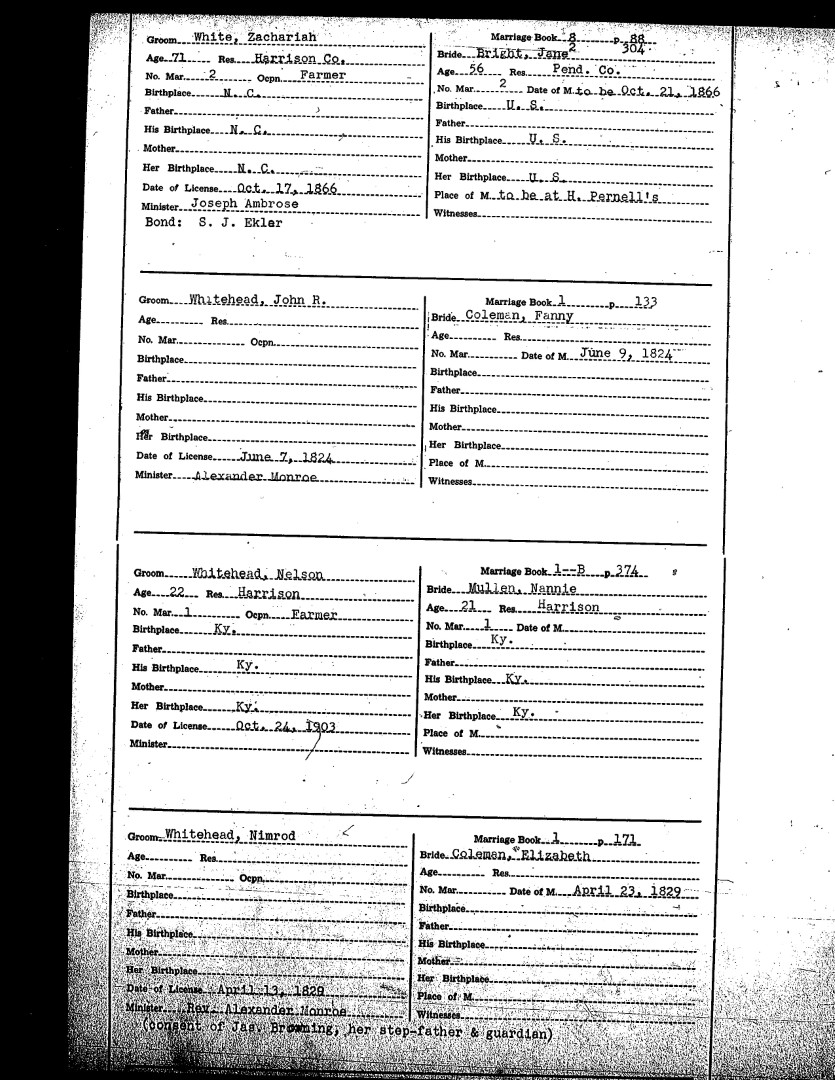 Groom White, Zachariah
Age 71 Res. Harrison Co.
No. Mar. 2 Ocpn. Farmer
Birthplace N. C.
Father
His Birthplace N. C.
Mother
Her Birthplace N. C.
Date of License Oct. 17, 1866
Minister Joseph Ambrose
Bond: S. J. Ekler
Marriage Book 8 p. 88
2 304
Bride Bright, Jane
Age 56 Res. Pend. Co.
No. Mar. 2 Date of M. to be Oct. 21, 1866
Birthplace U. S.
Father
His Birthplace U. S.
Mother
Her Birthplace U. S.
Place of M. to be at H. Pernell's
Witnesses
Groom Whitehead, John R.
Age Res.
No. Mar. Ocpn.
Birthplace
Father
His Birthplace
Mother
Her Birthplace
Date of License June 7, 1824
Minister Alexander Monroe
Marriage Book 1 p. 133
Bride Coleman, Fanny
Age Res.
No. Mar. Date of M. June 9, 1824
Birthplace
Father
His Birthplace
Mother
Her Birthplace
Place of M.
Witnesses
Groom Whitehead, Nelson
Age 22 Res. Harrison
No. Mar. 1 Ocpn. Farmer
Birthplace Ky.
Father
His Birthplace Ky.
Mother
Her Birthplace Ky.
Date of License Oct. 24, 1903
Minister
Marriage Book 1--B p. 374
Bride Mullen, Nannie
Age 21 Res. Harrison
No. Mar. 1 Date of M.
Birthplace Ky.
Father
His Birthplace Ky.
Mother
Her Birthplace Ky.
Place of M.
Witnesses
Groom Whitehead, Nimrod
Age Res.
No. Mar. Ocpn.
Birthplace
Father
His Birthplace
Mother
Her Birthplace
Date of License April 13, 1829
Minister Rev. Alexander Monroe
(consent of Jas. Browning, her step-father & guardian)
Marriage Book 1 p. 171
Bride Coleman, Elizabeth
Age Res.
No. Mar. Date of M. April 23, 1829
Birthplace
Father
His Birthplace
Mother
Her Birthplace
Place of M.
Witnesses